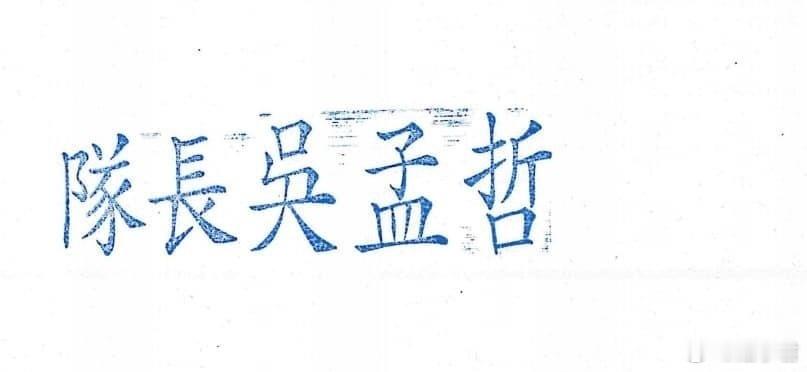 隊長吳孟哲